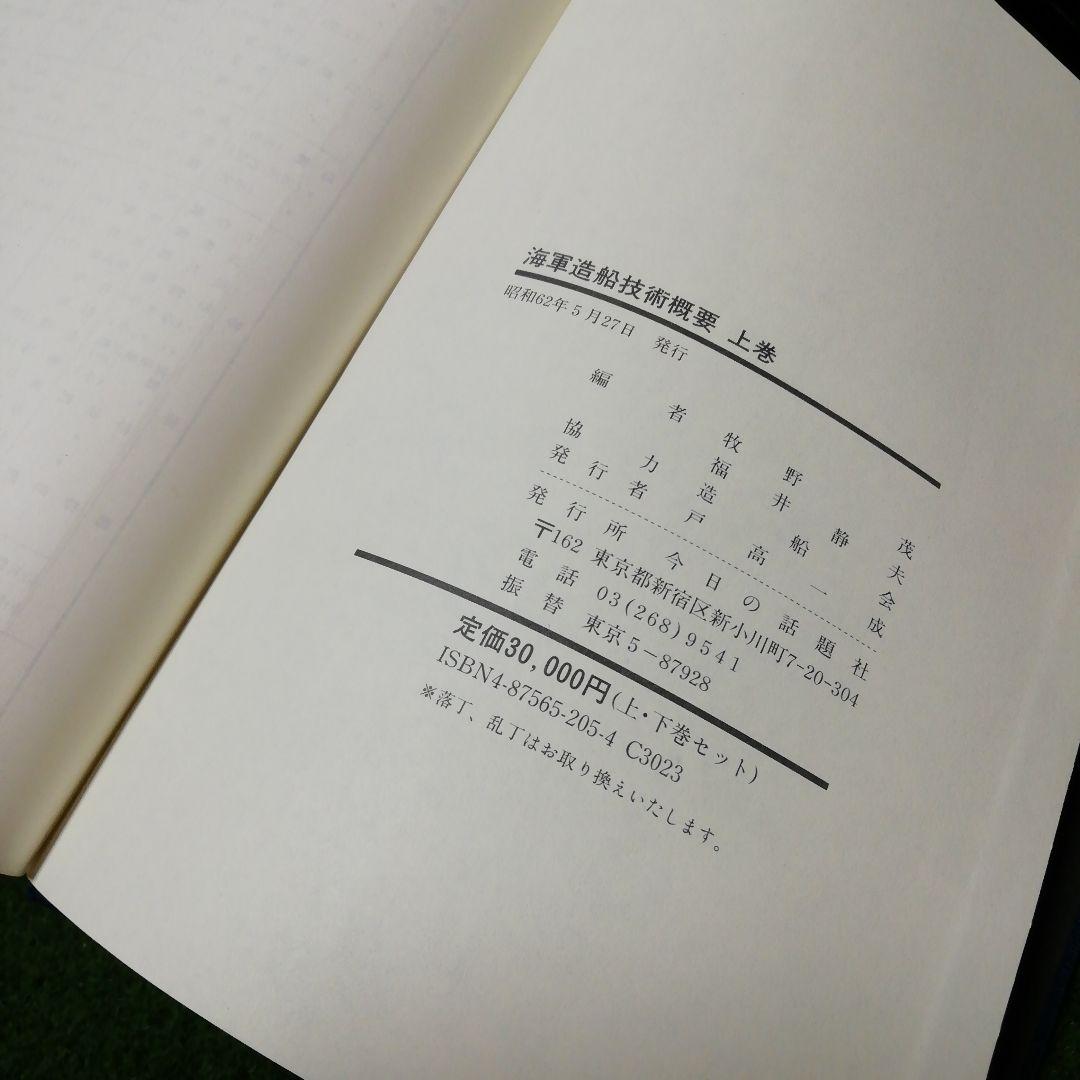 海軍造船技術概要 上巻
昭和62年5月27日 発行
編者 牧野 茂
協力 福井静夫
造船会
発行者 戸高一成
発行所 今日の話題社
〒162 東京都新宿区新小川町7-20-304
電話 03(268)9541
振替 東京5-87928
定価30,000円(上・下巻セット)
ISBN4-87565-205-4 C3023
※落丁、乱丁はお取り換えいたします。